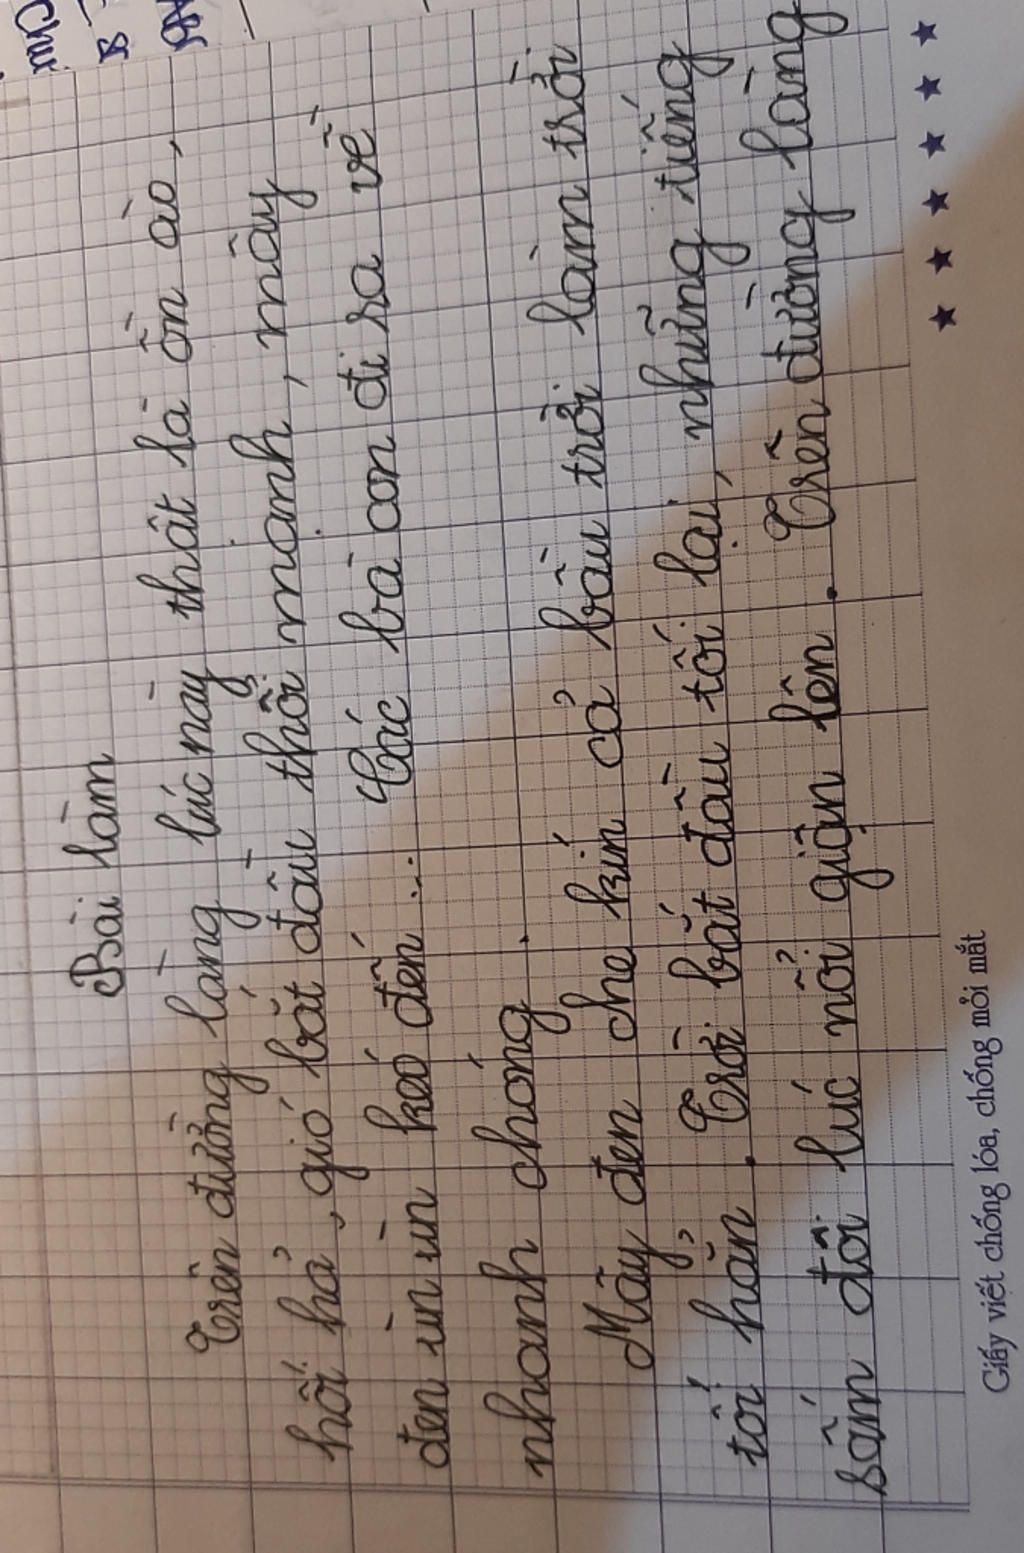 Bài làm
Trên đường làng lúc này thật là ồn ào,
hối hả, gió bắt đầu thổi mạnh, mây
đen ùn ùn kéo đến... Các bà con đi ra về
nhanh chóng.
Mây đen che kín cả bầu trời làm trời
tối hẳn. Trời bắt đầu tối lại, những tiếng
sấm đôi lúc nổi giận lên. Trên đường làng
Giấy viết chống lóa, chống mỏi mắt